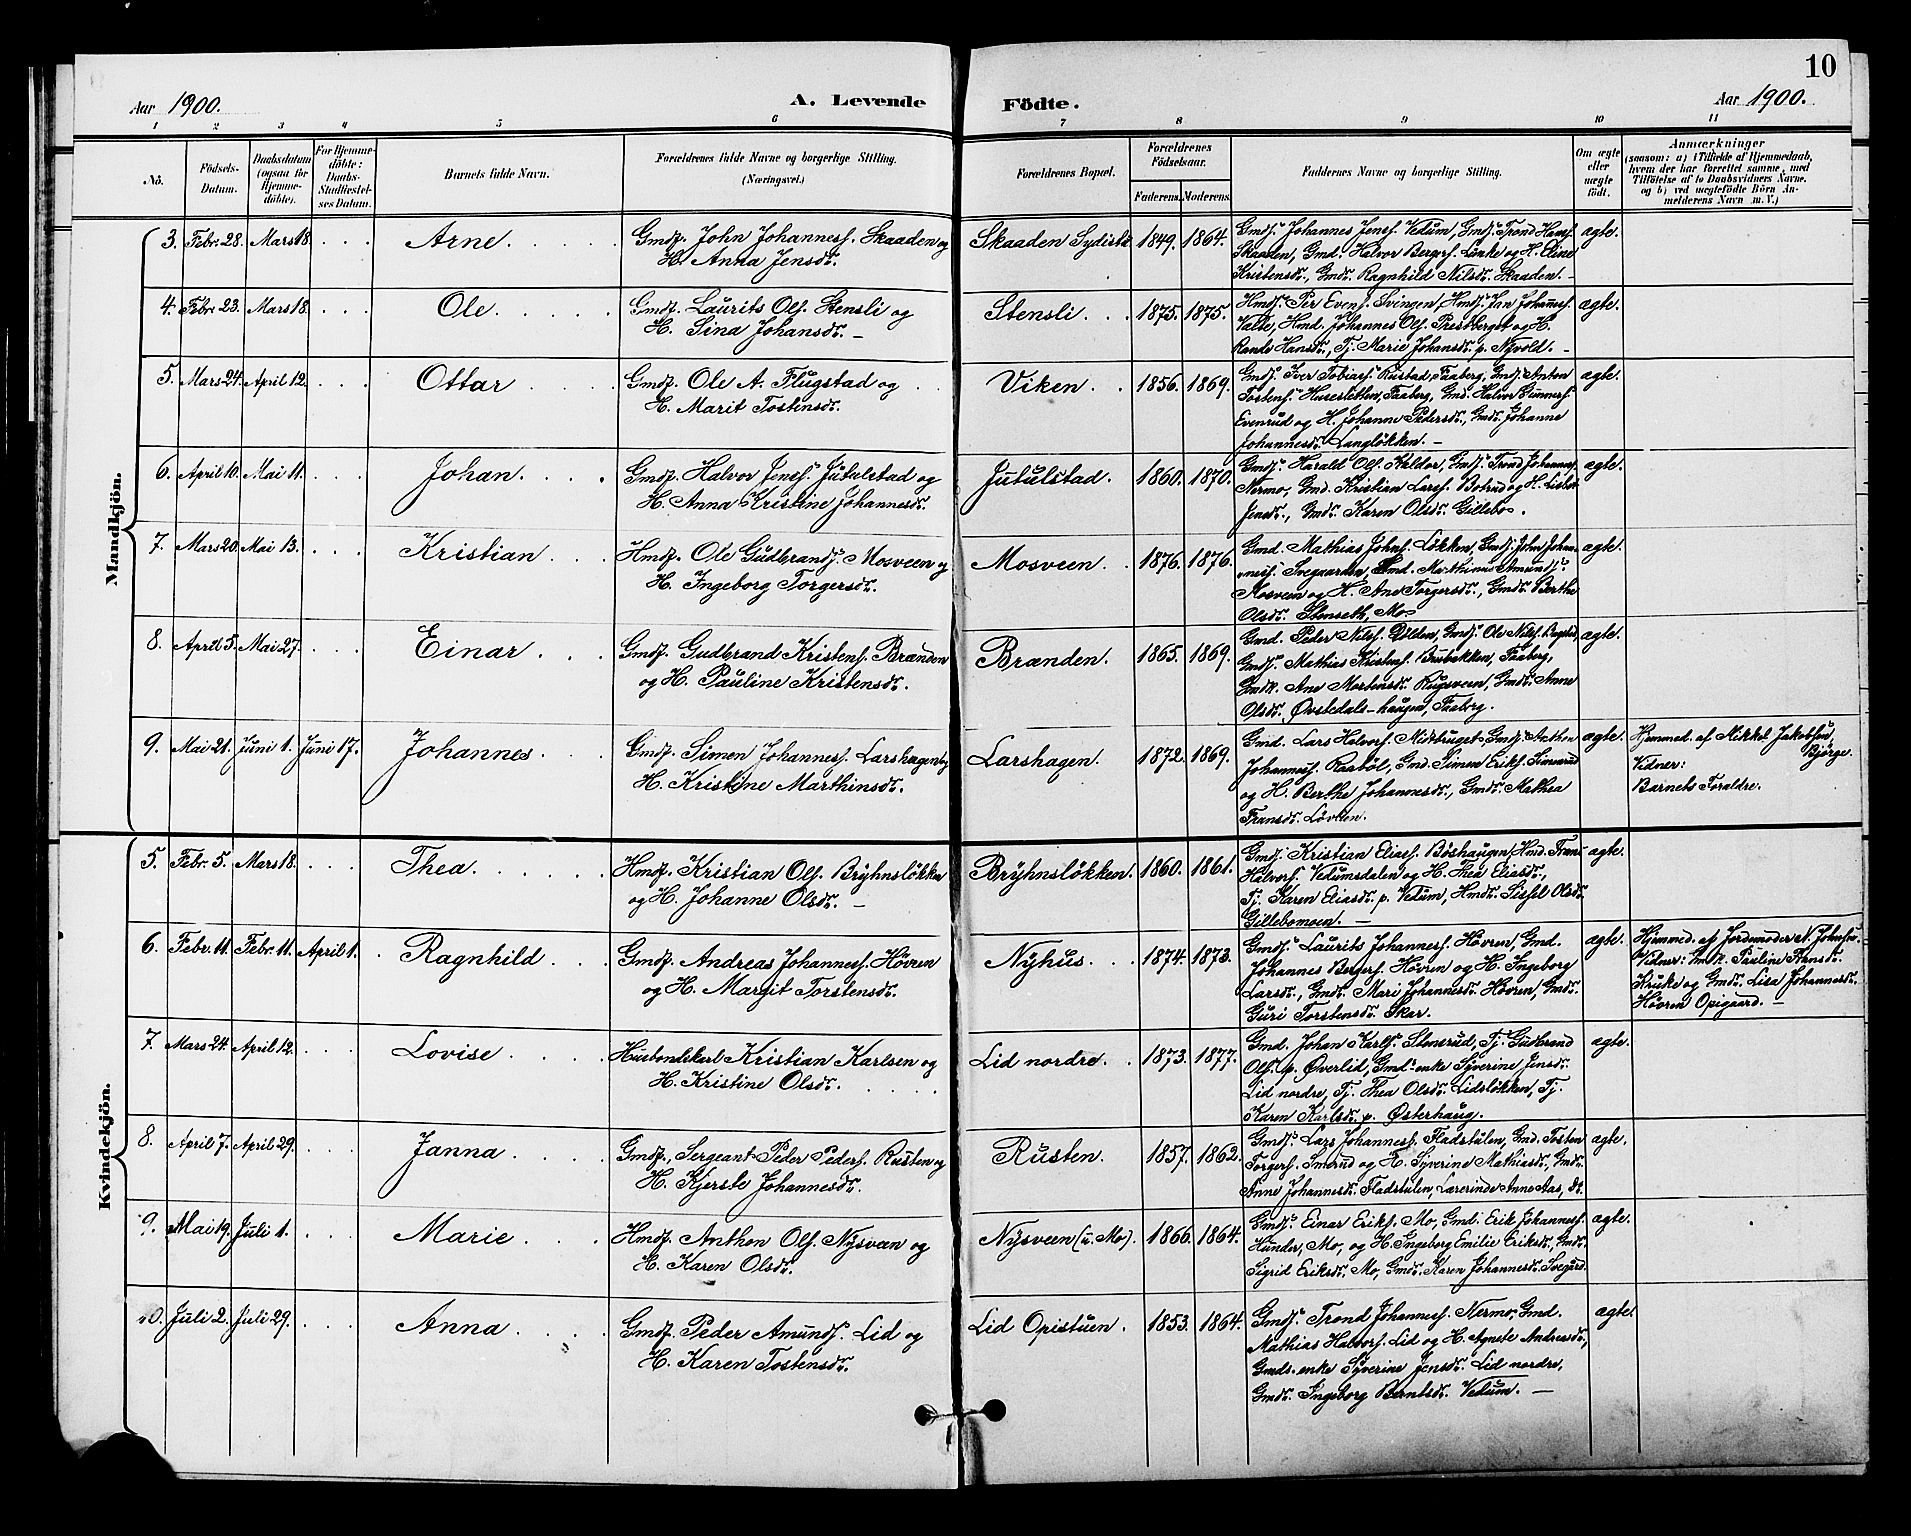 10
Aar 1900. A. Levende Födte. Aar 1900.
1 2 3 4 5 6 7 8 9 10 11
No.
Födsels-
Datum.
Daabsdatum
(ogsaa for
Hjemme-
döbte).
For Hjemme-
döbte:
Daabs-
Stadfæstel-
ses Datum.
Barnets fulde Navn.
Forældrenes fulde Navne og borgerlige Stilling.
(Næringsvei.)
Forældrenes Bopæl.
Forældrenes
Födselsaar.
Faderens. Moderens.
Faddernes Navne og borgerlige Stilling.
Om ægte
eller
uægte
födt.
Anmærkninger
(saasom: a) i Tilfælde af Hjemmedaab,
hvem der har forrettet samme, med
Tilföielse af to Daabsvidners Navne.
og b) ved uægtefödte Börn An-
melderens Navn m. V.)
Mandkjön.
3. Febr. 28. Mars 18. Arne.
Gmdf. John Johannesf. Skaaden og
H. Anna Jensdr.
Skaaden 1849. 1864.
Gmdf. Johannes Jensf. Vedum, Gmdf. Trond Hansf.
Skaaden, Gmd. Halvor Bergersf. Linke og H. Eline
Kristensdr., Gmdr. Ragnhild Nilsdr. Skaaden. –
ægte.
4. Febr. 23. Mars 18. Ole.
Gmdf. Laurits Olsf. Stensli og
H. Sina Johansdr. –
Stensli. 1875. 1875.
Hmdf. Per Evensf. Svingen, Hmdf. Jan Johannesf.
Valte, Hmd. Johannes Olsf. Prestberget og H.
Randi Hansdr., Tj. Marie Johansdr. p. Nyvold. –
ægte.
5. Mars 24. April 12. Ottar
Gmdf. Ole A. Flugstad og
H. Marit Tostensdr.
Viken. 1856. 1869.
Gmdf. Iver Tobiasf. Rustad, Faaberg, Gmdf. Anton
Tostensf. Huseslétten, Faaberg, Gmd. Halvor Gunnersf.
Evenrud og H. Johanne Pedersdr., Gmdr. Johanne
Johannesdr. Langlökken. –
ægte.
6. April 10. Mai 11. Johan.
Gmdf. Halvor Jensf. Jutulstad og
H. Anna Kristine Johannesdr.
Jutulstad. 1860. 1870.
Gmdf. Harald Olsf. Kaldor, Gmdf. Trond Johannesf.
Nermo, Gmd. Kristian Larsf. Botrud og H. Lisbet
Jensdr., Gmdr. Karen Olsdr. Gillebo.
ægte.
7. Mars 20. Mai 13. Kristian
Hmdf. Ole Gudbrandf. Mosveen og
H. Ingeborg Torgersdr.
Mosveen. 1876. 1876.
Gmd. Mathias Johnsf. Lökken, Gmdf. John Johan-
nesf. Svegaarden, Gmd. Marthinus Amundf.
Mosveen og H. Ane Torgersdr., Gmdr. Berthe
Olsdr. Stenseth, Mo
ægte.
8. April 5. Mai 27. Einar
Gmdf. Gudbrand Kristensf. Brænden
og H. Pauline Kristensdr.
Brænden. 1865. 1869.
Gmd. Peder Nilsf. Dölden, Gmdf. Ole Nilsf.
Gmdf. Mathias Kristensf. Busbakken, Faaberg,
Gmdk. Ane Mortensdr. Rugsveen, Gmdr. Anne
Olsdr. Øvstedals-haugen, Faaberg.
ægte.
9. Mai 21. Juni 1. Juni 17. Johannes
Gmdf. Simen Johannesf. Larshagen og
H. Kristine Marthinsdr.
Larshagen. 1872. 1869.
Gmd. Lars Halvorsf. Nidtbruget, Gmdf. Anthon
Johannesf. Raaböl, Gmd. Simen Eriksf. Simerud
og H. Berthe Johannesdr., Gmdr. Mathea
Fransdr. Lövlien.
ægte.
Hjemmed. af Mikkel Jakobsen,
Bjørge.
Vidner:
Barnets Foraldre.
Kvindekjön.
5. Febr. 5. Mars 18. Thea.
Hmdf. Kristian Olsf. Bryhnslökken
og H. Johanne Olsdr. –
Bryhnslökken. 1860. 1861.
Gmdf. Kristian Eliasf. Böshaugen, Hmd. Frans
Halvorsf. Vedumsdalen og H. Thea Eliasdr.,
Tj. Karen Eliasdr. p. Vedum, Hmdr. Sissel Olsdr.
Gillebomoen. –
ægte.
6. Febr. 11. Febr. 11. April 1. Ragnhild
Gmdf. Andreas Johannesf. Hövren
og H. Margit Torstensdr.
Nyhus. 1874. 1873.
Gmdf. Laurits Johannesf. Hövren, Gmd.
Johannes Bergersf. Hövren og H. Ingeborg
Larsdr., Gmdr. Mari Johannesdr. Hövren, Gmdr.
Guri Torstensdr. Skar.
ægte.
Hjemmed. af Jordemoder N. Johnsen.
Vidner: Gmdk. Pauline Hansdr.
Kruke og Gmdr. Lisa Johannesdr.
Hövren Opigaard. –
7. Mars 24. April 12. Lovise
Husbondskarl Kristian Karlsen og
H. Kristine Olsdr.
Lid nordre. 1873. 1877.
Gmd. Johan Karlsf. Stensrud, Tj. Gudbrand
Olsf. p. Øverlid, Gmd-enke Syverine Jensdr.
Lid nordre, Tj. Thea Olsdr. Lidslökken, Tj.
Karen Karlsdr. p. Østerhaug.
ægte.
8. April 7. April 29. Janna
Gmdf., Sergeant Peder Pedersf. Rusten og
H. Kjerste Johannesdr.
Rusten. 1857. 1862.
Gmdf. Lars Johannesf. Fladstulen, Gmd. Tosten
Torgersf. Smerud og H. Syverine Mathiasdr., Gmdr.
Anne Johannesdr. Fladstulen, Lærerinde Anne Aas, do.
ægte.
9. Mai 19. Juli 1. Marie
Hmdf. Anthon Olsf. Nysveen og
H. Karen Olsdr.
Nysveen (u. Mo). 1866. 1864.
Gmdf. Einar Eriksf. Mo, Gmd. Erik Johannesf.
Hunder, Mo, og H. Ingeborg Emilie Eriksdr., Gmdr.
Sigrid Eriksdr. Mo, Gmdr. Karen Johannesdr. Svegård.
ægte.
10. Juli 2. Juli 29. Anna
Gmdf. Peder Amundf. Lid og
H. Karen Tostensdr.
Lid Opistuen. 1853. 1864.
Gmdf. Trond Johannesf. Nermo, Gmd.
Mathias Halvorsf. Lid og H. Agnete Andreasdr.,
Gmds-enke Syverine Jensdr. Lid nordre,
Gmdr. Ingeborg Berntsdr. Vedum. –
ægte.